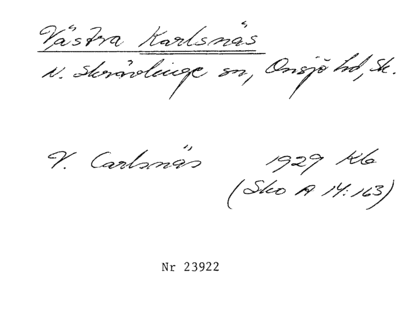 Västra Karlsnäs
N. Skrävlinge sn, Onsjö hd, Sk.
V. Carlsnäs 1929 Kb
(Sko A 14:163)
Nr 23922